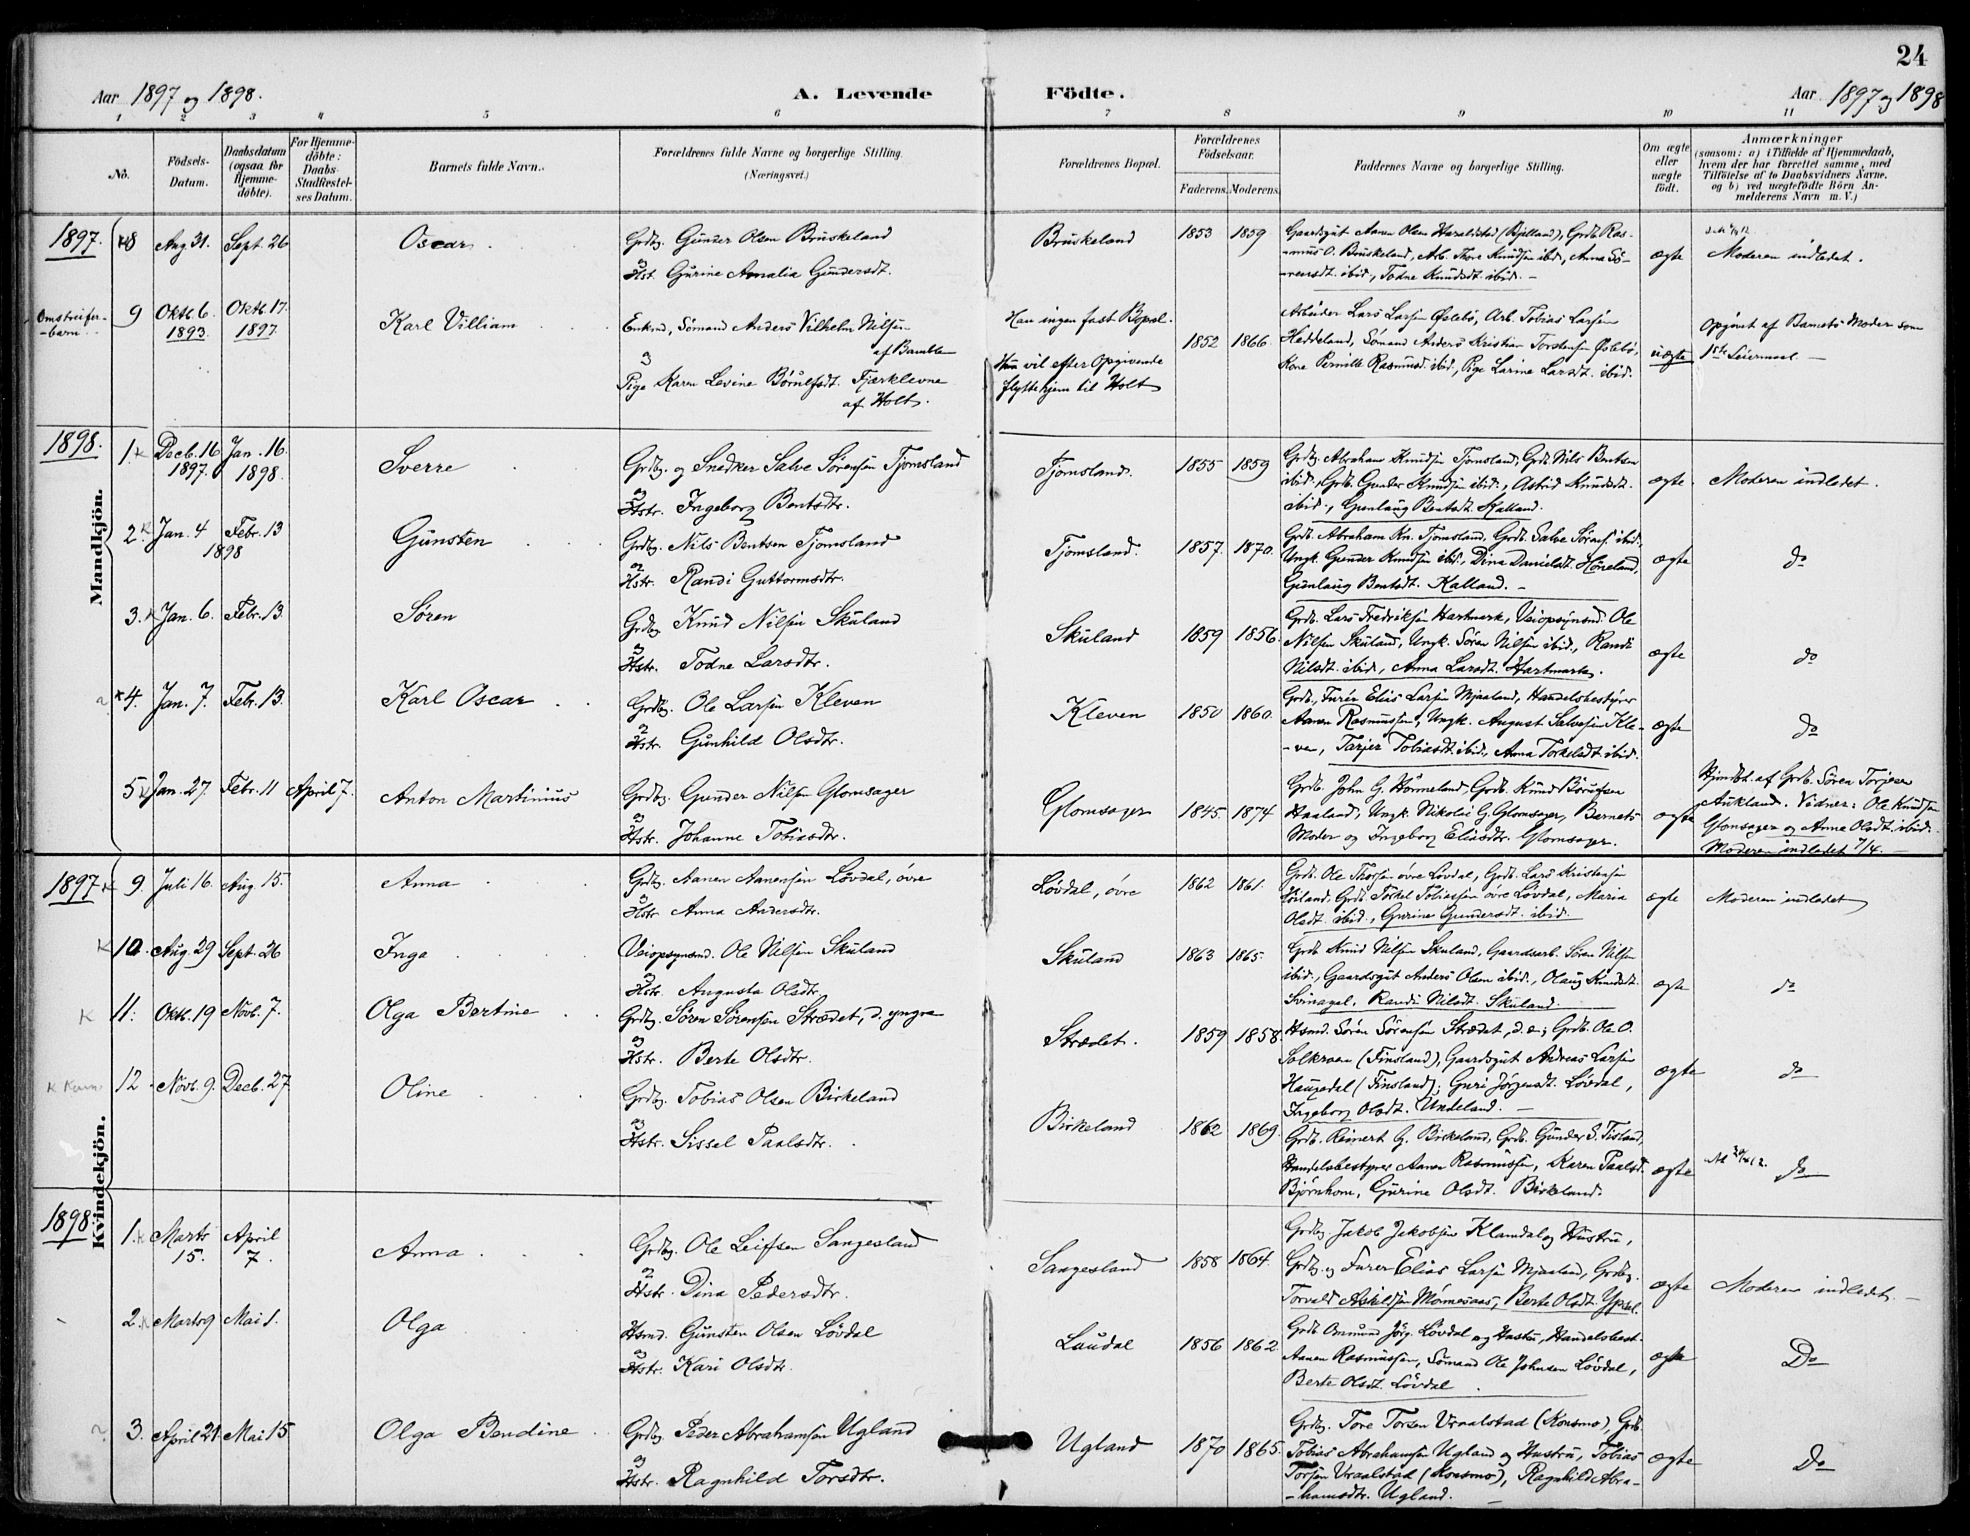 24
Aar 1897 og 1898.
A. Levende Födte.
Aar 1897 og 1898
1 2 3 4 5 6 7 8 9 10 11
No.
Födsels-Datum.
Daabsdatum (ogsaa for Hjemmedöbte).
For Hjemmedöbte: Daabs Stadfæstelses Datum.
Barnets fulde Navn.
Forældrenes fulde Navne og borgerlige Stilling.
(Næringsvei.)
Forældrenes Bopæl.
Forældrenes Födselsaar.
Faderens. Moderens.
Faddernes Navne og borgerlige Stilling.
Om ægte eller uægte födt.
Anmærkninger
(saasom: a) i Tilfælde af Hjemmedaab, hvem der har forrettet samme, med Tilföielse af to Daabsvidners Navne, og b) ved uægtefödte Börn Anmelderens Navn m. V.)
Mandkjön.
1897. 8 Aug 31. Sept. 26 Oscar
Grdbg. Gunder Olsen Bruskeland
og
Hst. Gurine Amalia Gundersdt.
Bruskeland 1853 1859
Gaardsgut Aanen Olsen (Bjelland), Grdb. Ras-
-mus O. Bruskeland, Arb. Tore Knudsen ibid, Anna Sö-
-rensdt. ibid., Todne Knudsdt. ibid. -
ægte Moderen indledet.
Omstreifer-
-barn 9 Oktb. 6. 1893. Oktb. 17. 1897. Karl Villiam
Enkmd, Sömand Anders Vilhelm Nilsen
af Bamble
og
Pige Karen Levine Börulfsdt. Fjærklevne
af Holt.
Han ingen fast Bopæl.
Hun vil efter Opgivende
flytte hjem til Holt
1852 1866.
Arbeider Lars Larsen Öslebö, Arb. Tobias Larsen
Heddeland, Sömand Anders Kristian Torstensen Öslebö,
Kone Pernille Rasmusd. ibid., Pige Larine Larsdt. ibid.
uægte
Opgivet af Barnets Moder som
1ste Leiermaal -
1898. 1. Decb. 16 1897. Jan. 16. 1898. Sverre
Grdbg. og Snedker Salve Sörensen Tjomsland
og
Hstr. Ingeborg Bentsdtr.
Tjomsland. 1855 1859
Grdbg. Abraham Knudsen Tjomsland, Grdb. Nils Bentsen
ibid., Grdb. Gunder Knudsen ibid., Astrid Knudsdt.
ibid., Gunlaug Bentsdt. Kalland.
ægte Moderen indledet.
2. Jan. 4 Febr. 13 1898 Gunsten
Grdbg. Nils Bentsen Tjomsland
og
Hstr. Randi Guttormsdtr.
Tjomsland. 1857. 1870.
Grdb. Abraham Kn. Tjomsland, Grdb. Salve Sörens. ibid.,
Ungk. Gunder Knudsen ibid., Dina Danielsdt. Höneland,
Gunlaug Bentsdt. Kalland. -
ægte do
3. Jan. 6. Febr. 13 Sören
Grdbg. Knud Nilsen Skuland
og
Hstr. Todne Larsdtr.
Skuland 1859 1856.
Grdb. Lars Fredriksen Hartmark, Veiopsynsmd. Ole
Nilsen Skuland, Ungk. Sören Nilsen ibid., Randi
Nilsdt. ibid., Anna Larsdt. Hartmark.
ægte do
4. Jan. 7. Febr. 13. Karl Oscar
Grdbg. Ole Larsen Kleven
og
Hstr. Gunhild Olsdtr.
Kleven 1850 1860.
Grdb., Furer Elias Larsen Mjaaland, Handelsbestyrer
Aanen Rasmussen, Ungk. August Salvesen Kle-
-ven, Tarjer Tobiasdt. ibid., Anna Torkelsdt. ibid.
ægte do
5 Jan. 27. Febr. 11 April 7. Anton Martinius
Grdbg. Gunder Nilsen Glomsager
og
Hstr. Johanne Tobiasdtr.
Glomsager 1845. 1874
Grdb. John G. Hörmeland, Grdb. Knud Börufsen
Haaland, Ungk. Nikolai G. Glomsager, Barnets
Moder og Ingeborg Eliasdtr. Glomsager.
ægte
Hjmdbt. af Grdb. Sören Torjesen
Aukland. Vidner: Ole Knudsen
Glomsager og Anne Olsdt. ibid.
Moderen indledet 7/4. -
Kvindekjön.
1897 9. Juli 16. Aug. 15. Anna
Grdbg. Aanen Aanensen Lövdal, övre
og
Hstr Anna Andersdtr.
Lövdal, övre 1862 1861.
Grdb. Ole Thorsen övre Lövdal, Grdb. Lars Kristensen
Grdb. Torkel Tobiassen övre Lövdal, Maria
Olsdt. ibid., Gurine Gundersdt. ibid.
ægte Moderen indledet
10. Aug. 29 Sept. 26 Inga
Veiopsynsmd. Ole Nilsen Skuland
og
Hstr. Augusta Olsdtr.
Skuland 1863 1865.
Grdb. Knud Nilsen Skuland, Gaardsarb. Sören Nilsen
ibid., Gaardsgut Anders Olsen ibid., Olaug Amundsdt.
Svinagel, Randi Nilsdt. Skuland.
ægte do
11. Oktb. 19 Novb. 7. Olga Bertine
Grdbg. Sören Sörensen Strædet, d. yngre
og
Hstr. Berte Olsdtr.
Strædet. 1859 1858.
Hsmd. Sören Sörensen Strædet, d. æ.; Grdb. Ole O.
Solkraaen (Finsland), Gaardsgut Andreas Larsen
Haugedal (Finsland); Guri Jörgensdt. Lövdal,
Ingeborg Olsdt. Undeland. -
ægte do
12. Novb. 9. Decb. 27 Oline
Grdbg. Tobias Olsen Birkeland
og
Hstr. Sissel Paalsdtr.
Birkeland 1862 1869.
Grdb. Reinert G. Birkeland, Grdb. Gunder S. Fisland,
Handelsbestyrer Aanen Rasmussen, Karen Paalsd.
Björnhom, Gurine Olsdt. Birkeland.
ægte do
1898 1. Marts 15. April 7. Anna
Grdbg. Ole Leifsen Sangesland
og
Hstr. Dina Pedersdtr.
Sangesland 1858 1864.
Grdbg Jakob Jakobsen Klamdal og Hustru,
Grdbg. og Furer Elias Larsen Mjaaland, Grdbg.
Torvald Askildsen Mönnesaas, Berte Olsdt. Ypsel.
ægte Moderen indledet. -
2. Marts 9 Mai 1. Olga
Hsmd. Gunsten Olsen Lövdal
og
Hstr. Kari Olsdtr.
Laudal 1856 1862
Grdb. Omund Jörg. Lövdal og Hustru, Handelsbest.
Aanen Rasmussen, Sömand Ole Johnsen Lövdal,
Berte Olsdt. Lövdal.
ægte Do
3. April 21. Mai 15 Olga Bendine
Grdbg. Peder Abrahamsen Ugland
og
Hstr. Ragnhild Torsdtr.
Ugland 1870 1865.
Grdbg. Tore Torsen Vraalstad (Konsmo), Grdb.
Tobias Abrahamsen Ugland og Hustru, Tobias
Torsen Vraalstad (Konsmo), Ragnhild Abra-
-hamsdtr. Ugland. -
ægte Do